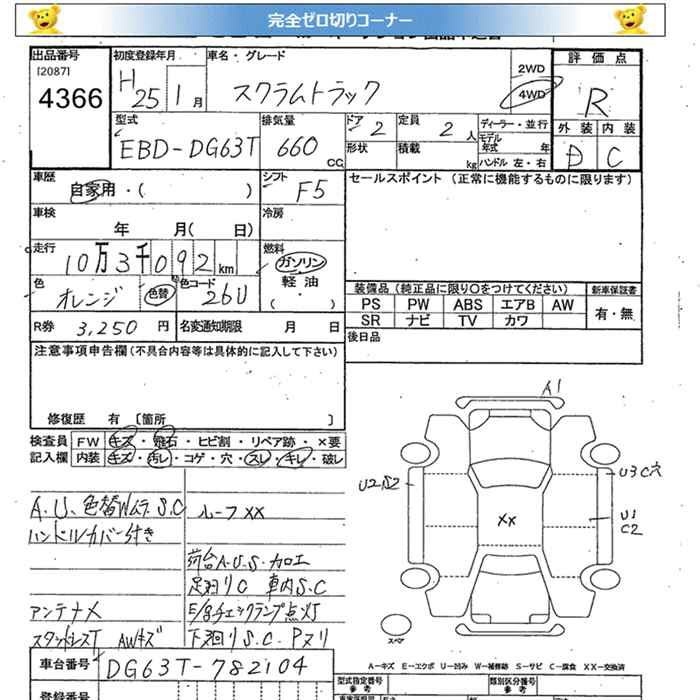 完全ゼロ切りコーナー
出品番号
[2087]
4366
初度登録年月
H25 1月
車名・グレード
スクラムトラック
2WD
4WD
評価点
R
外装 内装
D C
型式
EBD-DG63T
排気量
660 CC
ドア 2
形状
定員 2人
積載 kg
ディーラー・並行
モデル年式 年
ハンドル 左・右
車歴
自家用・( )
シフト
F5
セールスポイント (正常に機能するものに限ります)
車検
年 月( 日)
冷房
走行
10万3千092km
燃料
ガソリン
軽油
( )
色
オレンジ
色替
色コード
26U
装備品(純正品に限り○をつけてください)
新車保証書
PS PW ABS エアB AW
SR ナビ TV カワ
有・無
R券 3,250円
名変通知期限 月 日
後日品
注意事項申告欄(不具合内容等は具体的に記入して下さい)
修復歴 有 [箇所 ]
検査員
記入欄
FW キズ・飛石・ヒビ割・リペア跡・×要
内装 キズ・汚レ・コゲ・穴・スレ・キレ・破レ
A.U、色替Wムラ.S.C
ハンドルカバー付き
アンテナ×
スタッドレスT AWキズ
ルーフXX
荷台A.U.S.加工
足廻りC 車内S.C
E/gチェックランプ点灯
下廻りS.C.Pヌリ
A1
U2S2
U3C穴
XX
U1
C2
スペア
A-キズ E-エクボ U-凹み W-補修跡 S-サビ C-腐食 XX-交換済
車台番号
DG63T-782104
登録番号
型式指定番号
参考
類別区分番号
参考